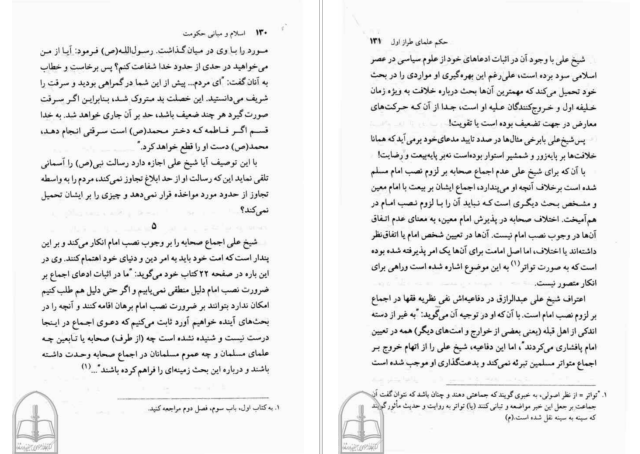 ۱۳۰ اسلام و مبانی حکومت
مورد را با وی در میان گذاشت. رسول‌الله(ص) فرمود: آیا از من
می‌خواهید در حدی از حدود خدا شفاعت کنم؟ پس برخاست و خطاب
به آنان گفت: "ای مردم... پیش از این شما در گمراهی بودید و سرقت را
شریف می‌دانستید. این خصلت بد متروک شد، بنابراین اگر سرقت
صورت گیرد هر چند ضعیف باشد، حد بر آن جاری خواهد شد. به خدا
قسم اگر فاطمه که دختر محمد(ص) است سرقتی انجام دهد،
محمد(ص) دست او را قطع خواهد کرد."
با این توصیف آیا شیخ علی اجازه دارد رسالت نبی(ص) را آسمانی
تلقی نماید این که رسالت او از حد ابلاغ تجاوز نمی‌کند، مردم را به واسطه
تجاوز از حدود مورد مواخذه قرار نمی‌دهد و چیزی را بر ایشان تحمیل
نمی‌کند؟
۵
شیخ علی اجماع صحابه را بر وجوب نصب امام انکار می‌کند و بر این
پندار است که امت خود باید به امر دین و دنیای خود اهتمام کنند. وی در
این باره در صفحه ۲۲ کتاب خود می‌گوید: "ما در اثبات ادعای اجماع بر
ضرورت نصب امام دلیل منطقی نمی‌یابیم و اگر حتی دلیل هم طلب کنیم
امکان ندارد بتوانند بر ضرورت نصب امام برهان اقامه کنند و آنچه را در
بحث‌های آینده خواهیم آورد ثابت می‌کنیم که دعوی اجماع در اینجا
درست نیست و شنیده نشده است چه (از طرف) صحابه یا تابعین چه
علمای مسلمان و چه عموم مسلمانان در اجماع صحابه وحدت داشته
باشند و درباره این بحث زمینه‌ای را فراهم کرده باشند"...(۱)
۱. به کتاب اول، باب سوم، فصل دوم مراجعه کنید.
حکم علمای طراز اول ۱۳۱
شیخ علی با وجود آن در اثبات ادعاهای خود از علوم سیاسی در عصر
اسلامی سود برده است، علی‌رغم این بهره‌گیری او مواردی را در بحث
خود تحمیل می‌کند که مهمترین آن‌ها بحث درباره خلافت به ویژه زمان
خلیفه اول و خروج‌کنندگان علیه او است، جدا از آن که حرکت‌های
معارض در جهت تضعیف بوده است یا تقویت!
پس شیخ علی بابرخی مثال‌ها در صدد تایید مدعای خود برمی‌آید که همانا
خلافت‌ها بر پایه‌زور و شمشیر استوار بوده‌است نه‌بر پایه‌بیعت و رضایت!
با آن که برای شیخ علی عدم اجماع صحابه بر لزوم نصب امام مسلم
شده است برخلاف آنچه او می‌پندارد، اجماع ایشان بر بیعت با امام معین
و مشخص بحث دیگری است که نباید آن را با لزوم نصب امام در
هم‌آمیخت. اختلاف صحابه در پذیرش امام معین، به معنای عدم اتفاق
آن‌ها در وجوب نصب امام نیست. آن‌ها در تعیین شخص امام یا اتفاق‌نظر
داشته‌اند یا اختلاف، اما اصل امامت برای آن‌ها یک امر پذیرفته شده بوده
است که به صورت تواتر(۱) به این موضوع اشاره شده است وراهی برای
انکار متصور نیست.
اعتراف شیخ علی عبدالرازق در دفاعیه‌اش نفی نظریه فقها در اجماع
بر لزوم نصب امام است. با آن که او در توجیه آن می‌گوید: "به غیر از دسته
اندکی از اهل قبله (یعنی بعضی از خوارج و امت‌های دیگر) همه در تعیین
امام پافشاری می‌کردند"، اما این دفاعیه، شیخ علی را از اتهام خروج بر
اجماع متواتر مسلمین تبرئه نمی‌کند و بدعت‌گذاری او موجب شده است
۱. "تواتر = از نظر اصولی، به خبری گویند که جماعتی دهند و چنان باشد که نتوان گفت آن
جماعت بر جعل این خبر مواضعه و تبانی کنند (یا) تواتر به روایت و حدیث مأثور گویند
که سینه به سینه نقل شده است.(م)